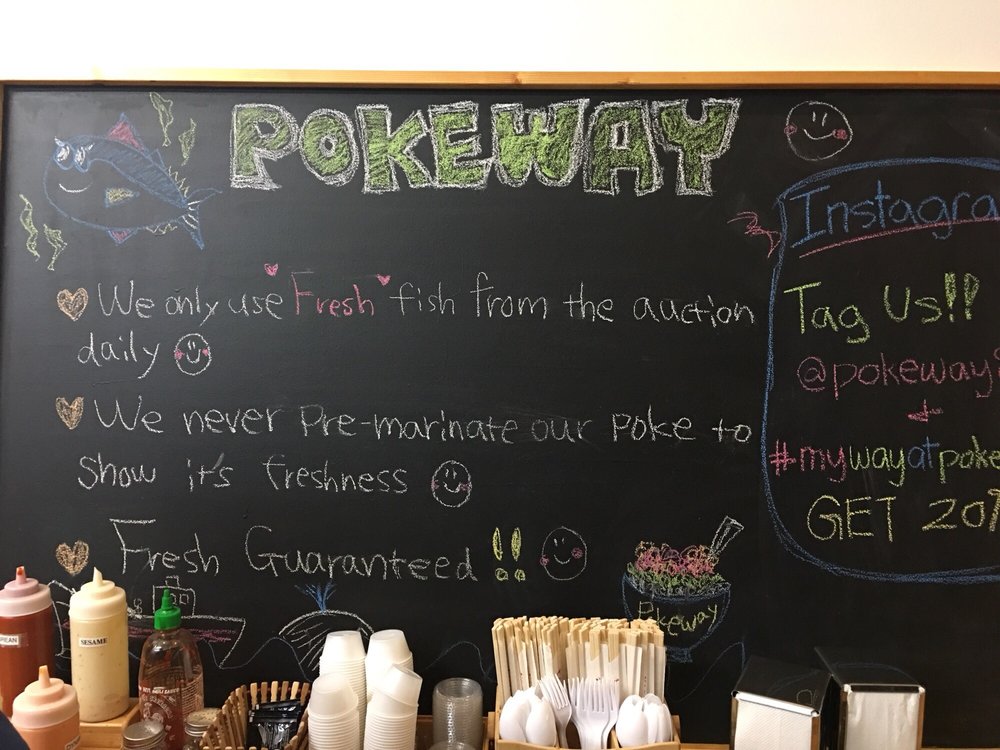 POKEWAY
We only use Fresh fish from the auction
daily
We never pre-marinate our poke to
show it's freshness
Fresh Guaranteed !!
Pokeway
Instagra
Tag Us!!
@pokeway
+
#mywayatpoke
GET 20
SESAME